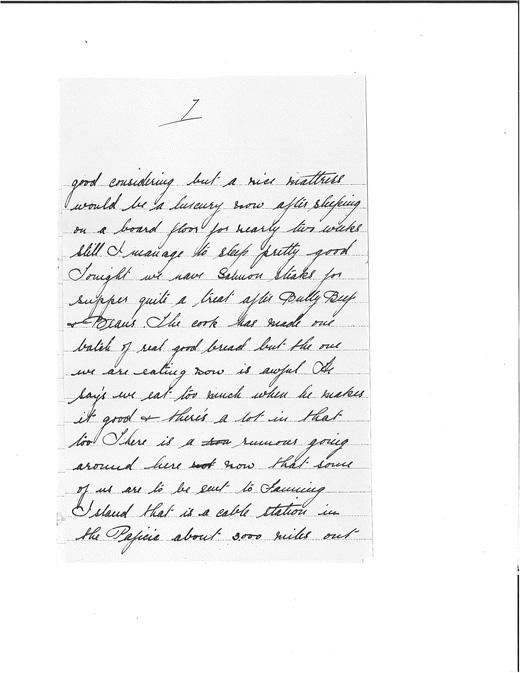 7
good considering but a nice mattress
would be a luxcury now after sleeping
on a board floor for nearly two weeks
still I manage to sleep pretty good
Tonight we have Salmon steaks for
supper quite a treat after Bully Beef
& Beans. The cook has made one
batch of real good bread but the one
we are eating now is awful He
say's we eat too much when he makes
it good & there's a lot in that
too There is a rumour going
around here now that some
of us are to be sent to Fanning
Island that is a cable station in
the Pacific about 3000 miles out